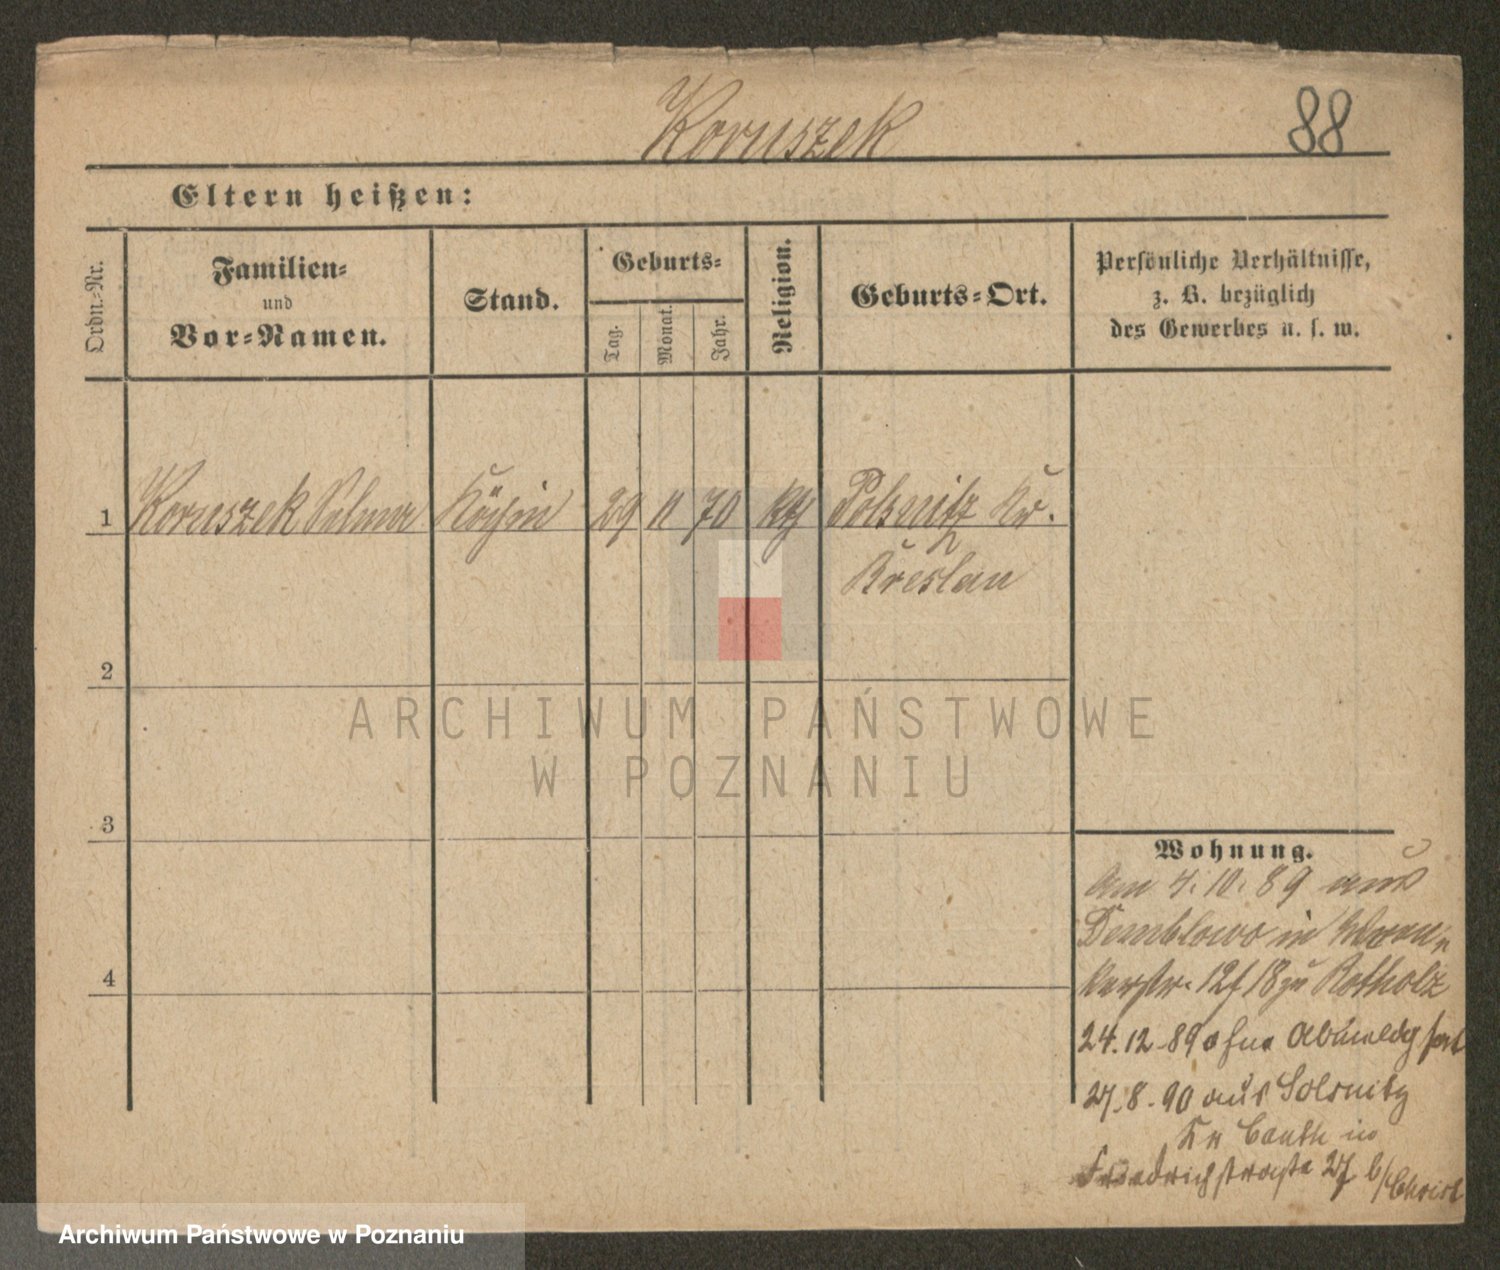 Koruszek 88
Eltern heißen:
Ordn.-Nr.
Familien-
und
Vor-Namen.
Stand.
Geburts-
Tag.
Monat.
Jahr.
Religion.
Geburts-Ort.
Persönliche Verhältnisse,
z. B. bezüglich
des Gewerbes u. s. w.
1 Koruszek Selma Köchin 29 11 70 kth Polsnitz Kr.
Breslau
2
3
4
Wohnung.
am 4. 10. 89 aus
Demblowo in
12 f 18 zu Rotholz
24. 12. 89 ohne Abmeldg fort
27. 8. 90 aus Polsnitz
Kr Canth in
Friedrichstraße 27 b/Christ
ARCHIWUM PAŃSTWOWE
W POZNANIU
Archiwum Państwowe w Poznaniu